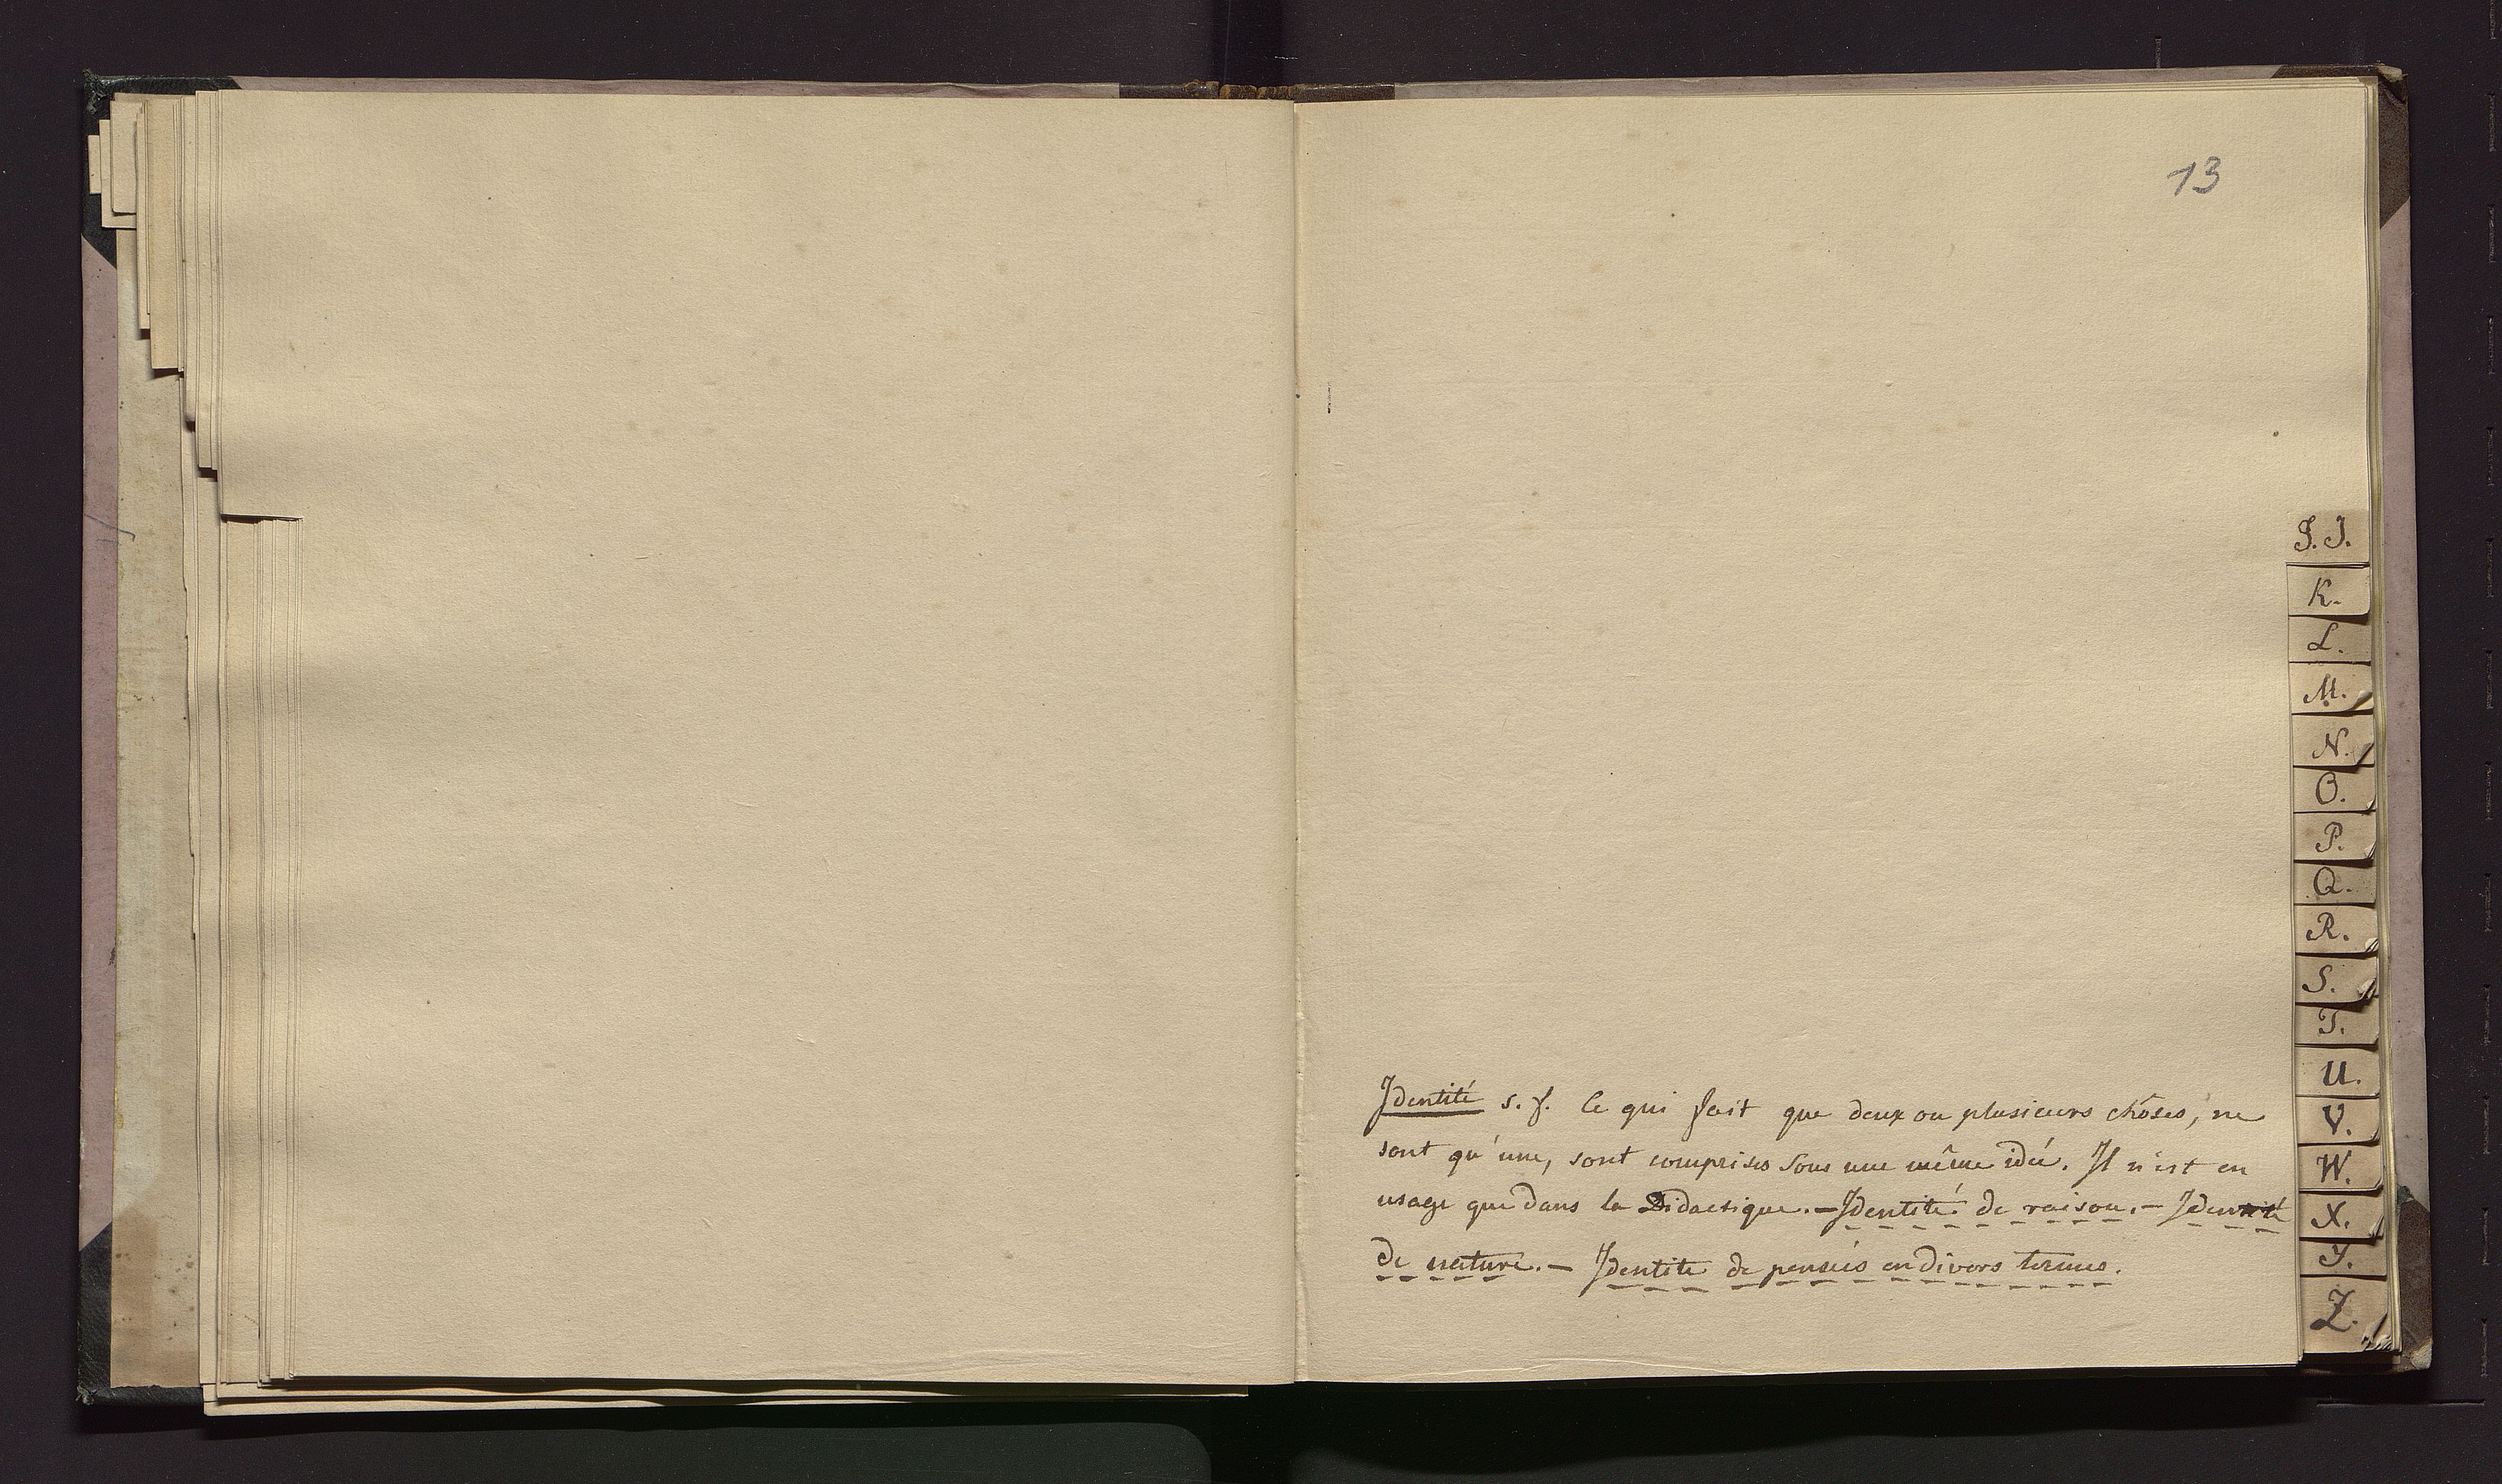 13
J. I.
K.
L.
M.
N.
O.
P.
Q.
R.
S.
T.
U.
V.
W.
X.
Y.
Z.
Identité s. f. Ce qui fait que deux ou plusieurs chôses, ne
sont qu'une, sont comprises sous une même idée. Il n'est en
usage que dans la Didactique. – Identité de raison. – Identité
de nature. – Identité de pensées en divers termes.